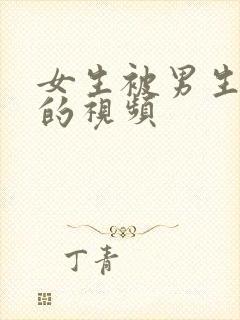 女生被男生
的視頻
丁青